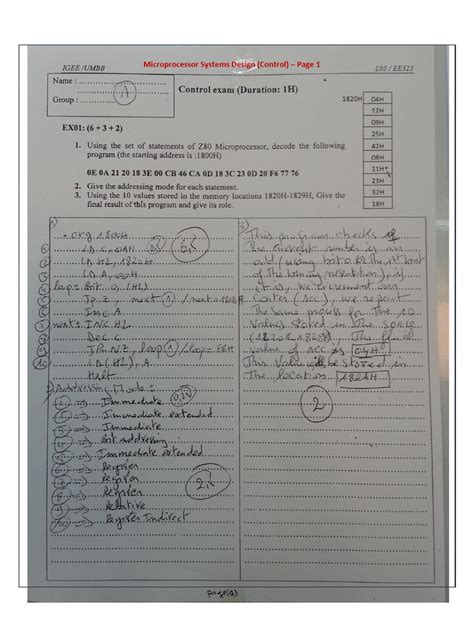 Microprocessor Systems Design (Control) – Page 1
IGEE /UMBB
L05 / EE323
Name :
Group :
A
Control exam (Duration: 1H)
1820H
04H
12H
09H
25H
42H
08H
11H
23H
32H
18H
EX01: (6 + 3 + 2)
1. Using the set of statements of Z80 Microprocessor, decode the following
program (the starting address is :1800H)
0E 0A 21 20 18 3E 00 CB 46 CA 0D 18 3C 23 0D 20 F6 77 76
2. Give the addressing mode for each statement.
3. Using the 10 values stored in the memory locations 1820H-1829H, Give the
final result of this program and give its role.
1)
. org 1800H
① LD C, 0AH
② LD HL, 1820H
③ LD A, 00H
④ loop: Bit 0, (HL)
⑤ JP Z, next / next = 180DH
⑥ Inc A
⑦ next: INC HL
⑧ Dec C
⑨ JR NZ, loop / loop = F6H
⑩ LD (HL), A
Halt
2) Addressing Mode:
① => Immediate
② => Immediate extended
③ => Immediate
④ => bit Addressing
⑤ => Immediate Extended
⑥ => Register
⑦ => Register
⑧ => Register
⑨ => Relative
⑩ => Register Indirect
3)
This program checks if
The current number is an
odd (using bit 0
it is, we increment our
(Acc), we repeat
The same for The 10
Values stored in The space
(1820 - 1829H), The final
value of acc is 04H
This Value will be stored in
The location 182AH
2
page(1)